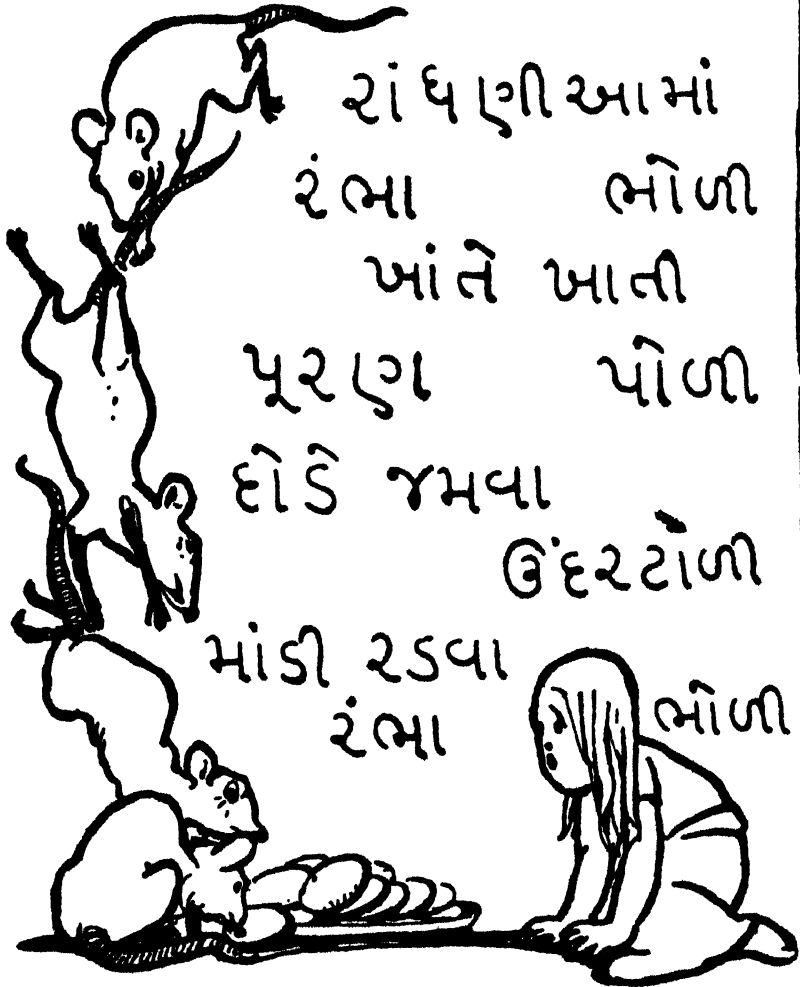 રાંધણીઆમાં
રંભા ભોળી
ખાંતે ખાતી
પૂરણ પોળી
દોડે જમવા
ઉંદરટોળી
માંડી રડવા
રંભા ભોળી